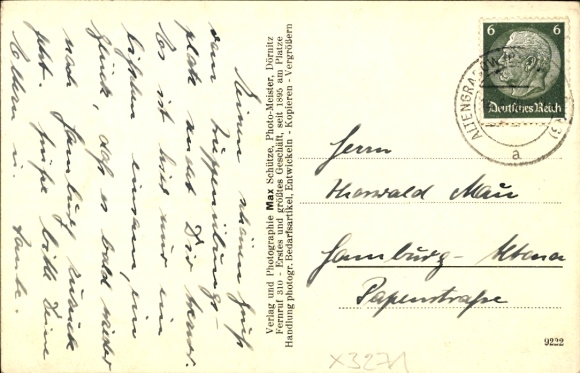 Meinen schönen Gruß
vom Truppenübungs-
platz an Dir
Es ist hier nur ein
bißchen einsam, ein
Glück, daß es bald wieder
nach Hamburg zurück
geht. Grüße bitte Deine
Eltern u.
Verlag und Photographie Max Schütze, Photo-Meister, Dörnitz
Fernruf 310 - Erstes und größtes Geschäft, seit 1895 am Platze
Handlung photogr. Bedarfsartikel, Entwickeln - Kopieren - Vergrößern
6 6
Deutsches Reich
ALTENGRABOW
a
Herrn
Thorwald Mau
Hamburg-Altona
Papenstraße
9222
X3271